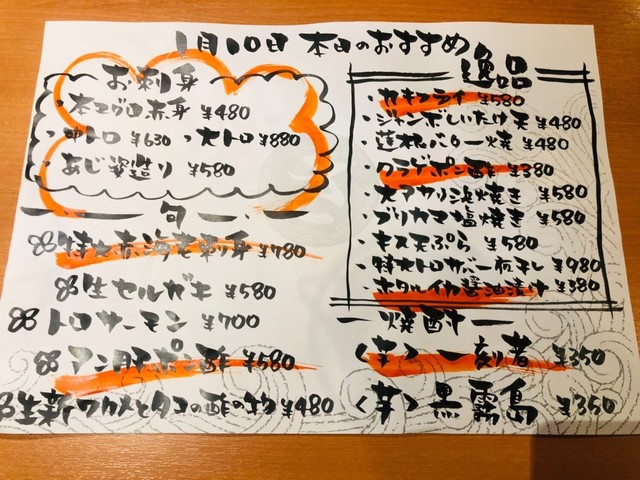 1月10日 本日のおすすめ
お刺身
・本マグロ赤身 ¥480
・中トロ ¥630 ・大トロ ¥880
・あじ姿造り ¥580
旬
特大赤海老刺身 ¥780
生セルガキ ¥580
トロサーモン ¥700
アン肝ポン酢 ¥580
生新ワカメとタコの酢の物 ¥480
逸品
・カキフライ ¥580
・ジャンボしいたけ天 ¥480
・蓮根バター焼 ¥480
・クラゲポン酢 ¥380
・大アサリ浜焼き ¥580
・ブリカマ塩焼き ¥580
・キス天ぷら ¥580
・特大トロサバ一夜干し ¥980
・ホタルイカ醤油漬け ¥380
焼酎
(芋) 一刻者 ¥350
(芋) 黒霧島 ¥350